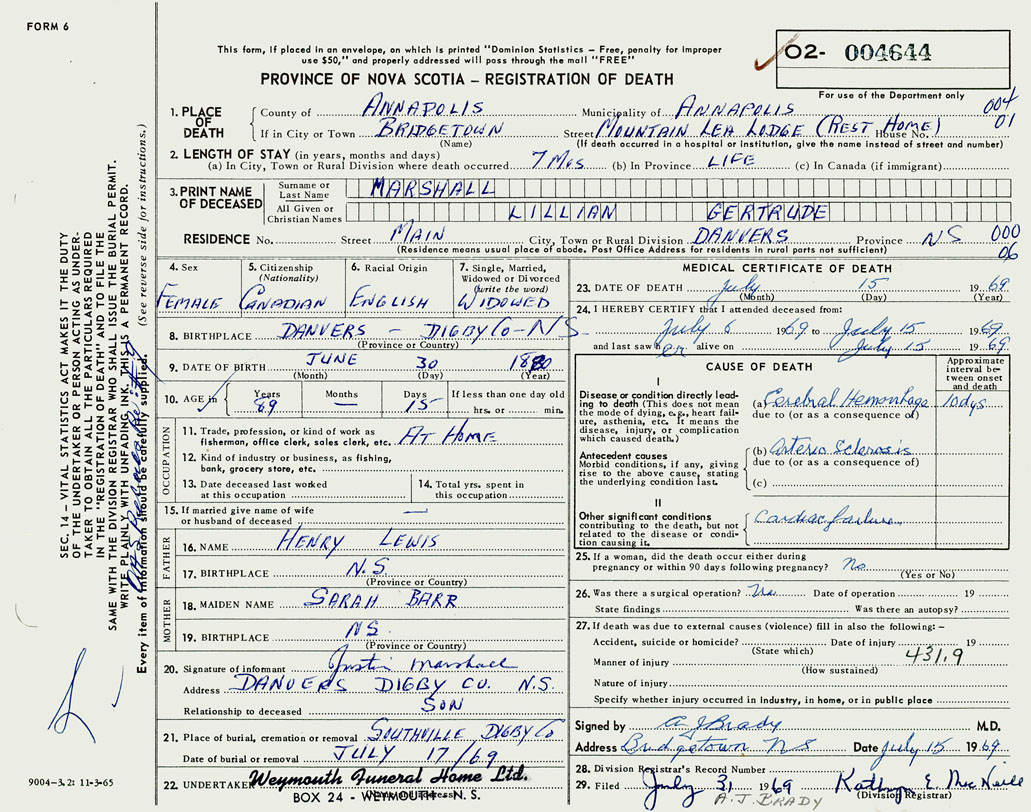 FORM 6
This form, if placed in an envelope, on which is printed "Dominion Statistics – Free, penalty for improper
use $50," and properly addressed will pass through the mail "FREE"
PROVINCE OF NOVA SCOTIA – REGISTRATION OF DEATH
O2- 004644
For use of the Department only
004
01
1. PLACE OF DEATH
County of ANNAPOLIS Municipality of ANNAPOLIS
If in City or Town BRIDGETOWN Street MOUNTAIN LEA LODGE (REST HOME) House No.
(Name) (If death occurred in a hospital or institution, give the name instead of street and number)
2. LENGTH OF STAY (in years, months and days)
(a) In City, Town or Rural Division where death occurred 7 MOS (b) In Province LIFE (c) In Canada (if immigrant)
3. PRINT NAME OF DECEASED
Surname or Last Name MARSHALL
All Given or Christian Names LILLIAN GERTRUDE
RESIDENCE No. Street MAIN City, Town or Rural Division DANVERS Province NS 000
(Residence means usual place of abode. Post Office Address for residents in rural parts not sufficient) 06
4. Sex FEMALE
5. Citizenship (Nationality) CANADIAN
6. Racial Origin ENGLISH
7. Single, Married, Widowed or Divorced (write the word) WIDOWED
8. BIRTHPLACE DANVERS – DIGBY CO – N S
(Province or Country)
9. DATE OF BIRTH JUNE 30 1880
(Month) (Day) (Year)
10. AGE in Years 89 Months — Days 15 If less than one day old hrs. or min.
OCCUPATION
11. Trade, profession, or kind of work as fisherman, office clerk, sales clerk, etc. AT HOME
12. Kind of industry or business, as fishing, bank, grocery store, etc.
13. Date deceased last worked at this occupation
14. Total yrs. spent in this occupation
15. If married give name of wife or husband of deceased —
FATHER
16. NAME HENRY LEWIS
17. BIRTHPLACE N.S.
(Province or Country)
MOTHER
18. MAIDEN NAME SARAH BARR
19. BIRTHPLACE NS
(Province or Country)
20. Signature of informant Justin Marshall
Address DANVERS DIGBY CO. N.S.
Relationship to deceased SON
21. Place of burial, cremation or removal SOUTHVILLE DIGBY Co
Date of burial or removal JULY 17/69
22. UNDERTAKER Weymouth Funeral Home Ltd.
BOX 24 - WEYMOUTH N. S.
MEDICAL CERTIFICATE OF DEATH
23. DATE OF DEATH July 15 1969
(Month) (Day) (Year)
24. I HEREBY CERTIFY that I attended deceased from:
July 6 1969 to July 15 1969
and last saw her alive on July 15 1969
CAUSE OF DEATH
Approximate interval between onset and death
I
Disease or condition directly leading to death (This does not mean the mode of dying, e.g., heart failure, asthenia, etc. It means the disease, injury, or complication which caused death.)
(a) Cerebral Hemorrhage 10 dys
due to (or as a consequence of)
Antecedent causes
Morbid conditions, if any, giving rise to the above cause, stating the underlying condition last.
(b) Arterio Sclerosis
due to (or as a consequence of)
(c)
II
Other significant conditions contributing to the death, but not related to the disease or condition causing it.
Cardiac failure
25. If a woman, did the death occur either during
pregnancy or within 90 days following pregnancy? No
(Yes or No)
26. Was there a surgical operation? No Date of operation 19
State findings Was there an autopsy?
27. If death was due to external causes (violence) fill in also the following: –
Accident, suicide or homicide? Date of injury 19
(State which) 431.9
Manner of injury
(How sustained)
Nature of injury
Specify whether injury occurred in industry, in home, or in public place
Signed by A J Brady M.D.
Address Bridgetown NS Date July 15 1969
28. Division Registrar's Record Number
29. Filed July 31 1969 Kathryn E. MacNeill
A.J. BRADY (Division Registrar)
SEC. 14 – VITAL STATISTICS ACT MAKES IT THE DUTY
OF THE UNDERTAKER OR PERSON ACTING AS UNDER-
TAKER TO OBTAIN ALL THE PARTICULARS REQUIRED
IN THE "REGISTRATION OF DEATH" AND TO FILE THE
SAME WITH THE DIVISION REGISTRAR WHO SHALL ISSUE THE BURIAL PERMIT.
WRITE PLAINLY WITH UNFADING INK. THIS IS A PERMANENT RECORD.
Every item of information should be carefully supplied. (See reverse side for instructions.)
9004–3.2: 11-3-65